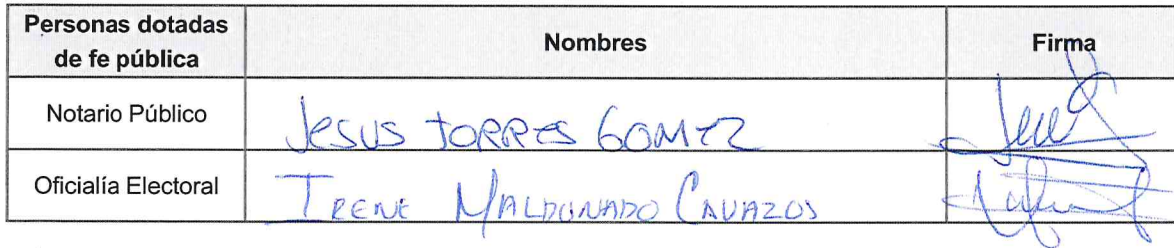 Personas dotadas de fe pública Nombres Firma
Notario Público JESUS TORRES GOMEZ
Oficialía Electoral IRENE MALDONADO CAVAZOS